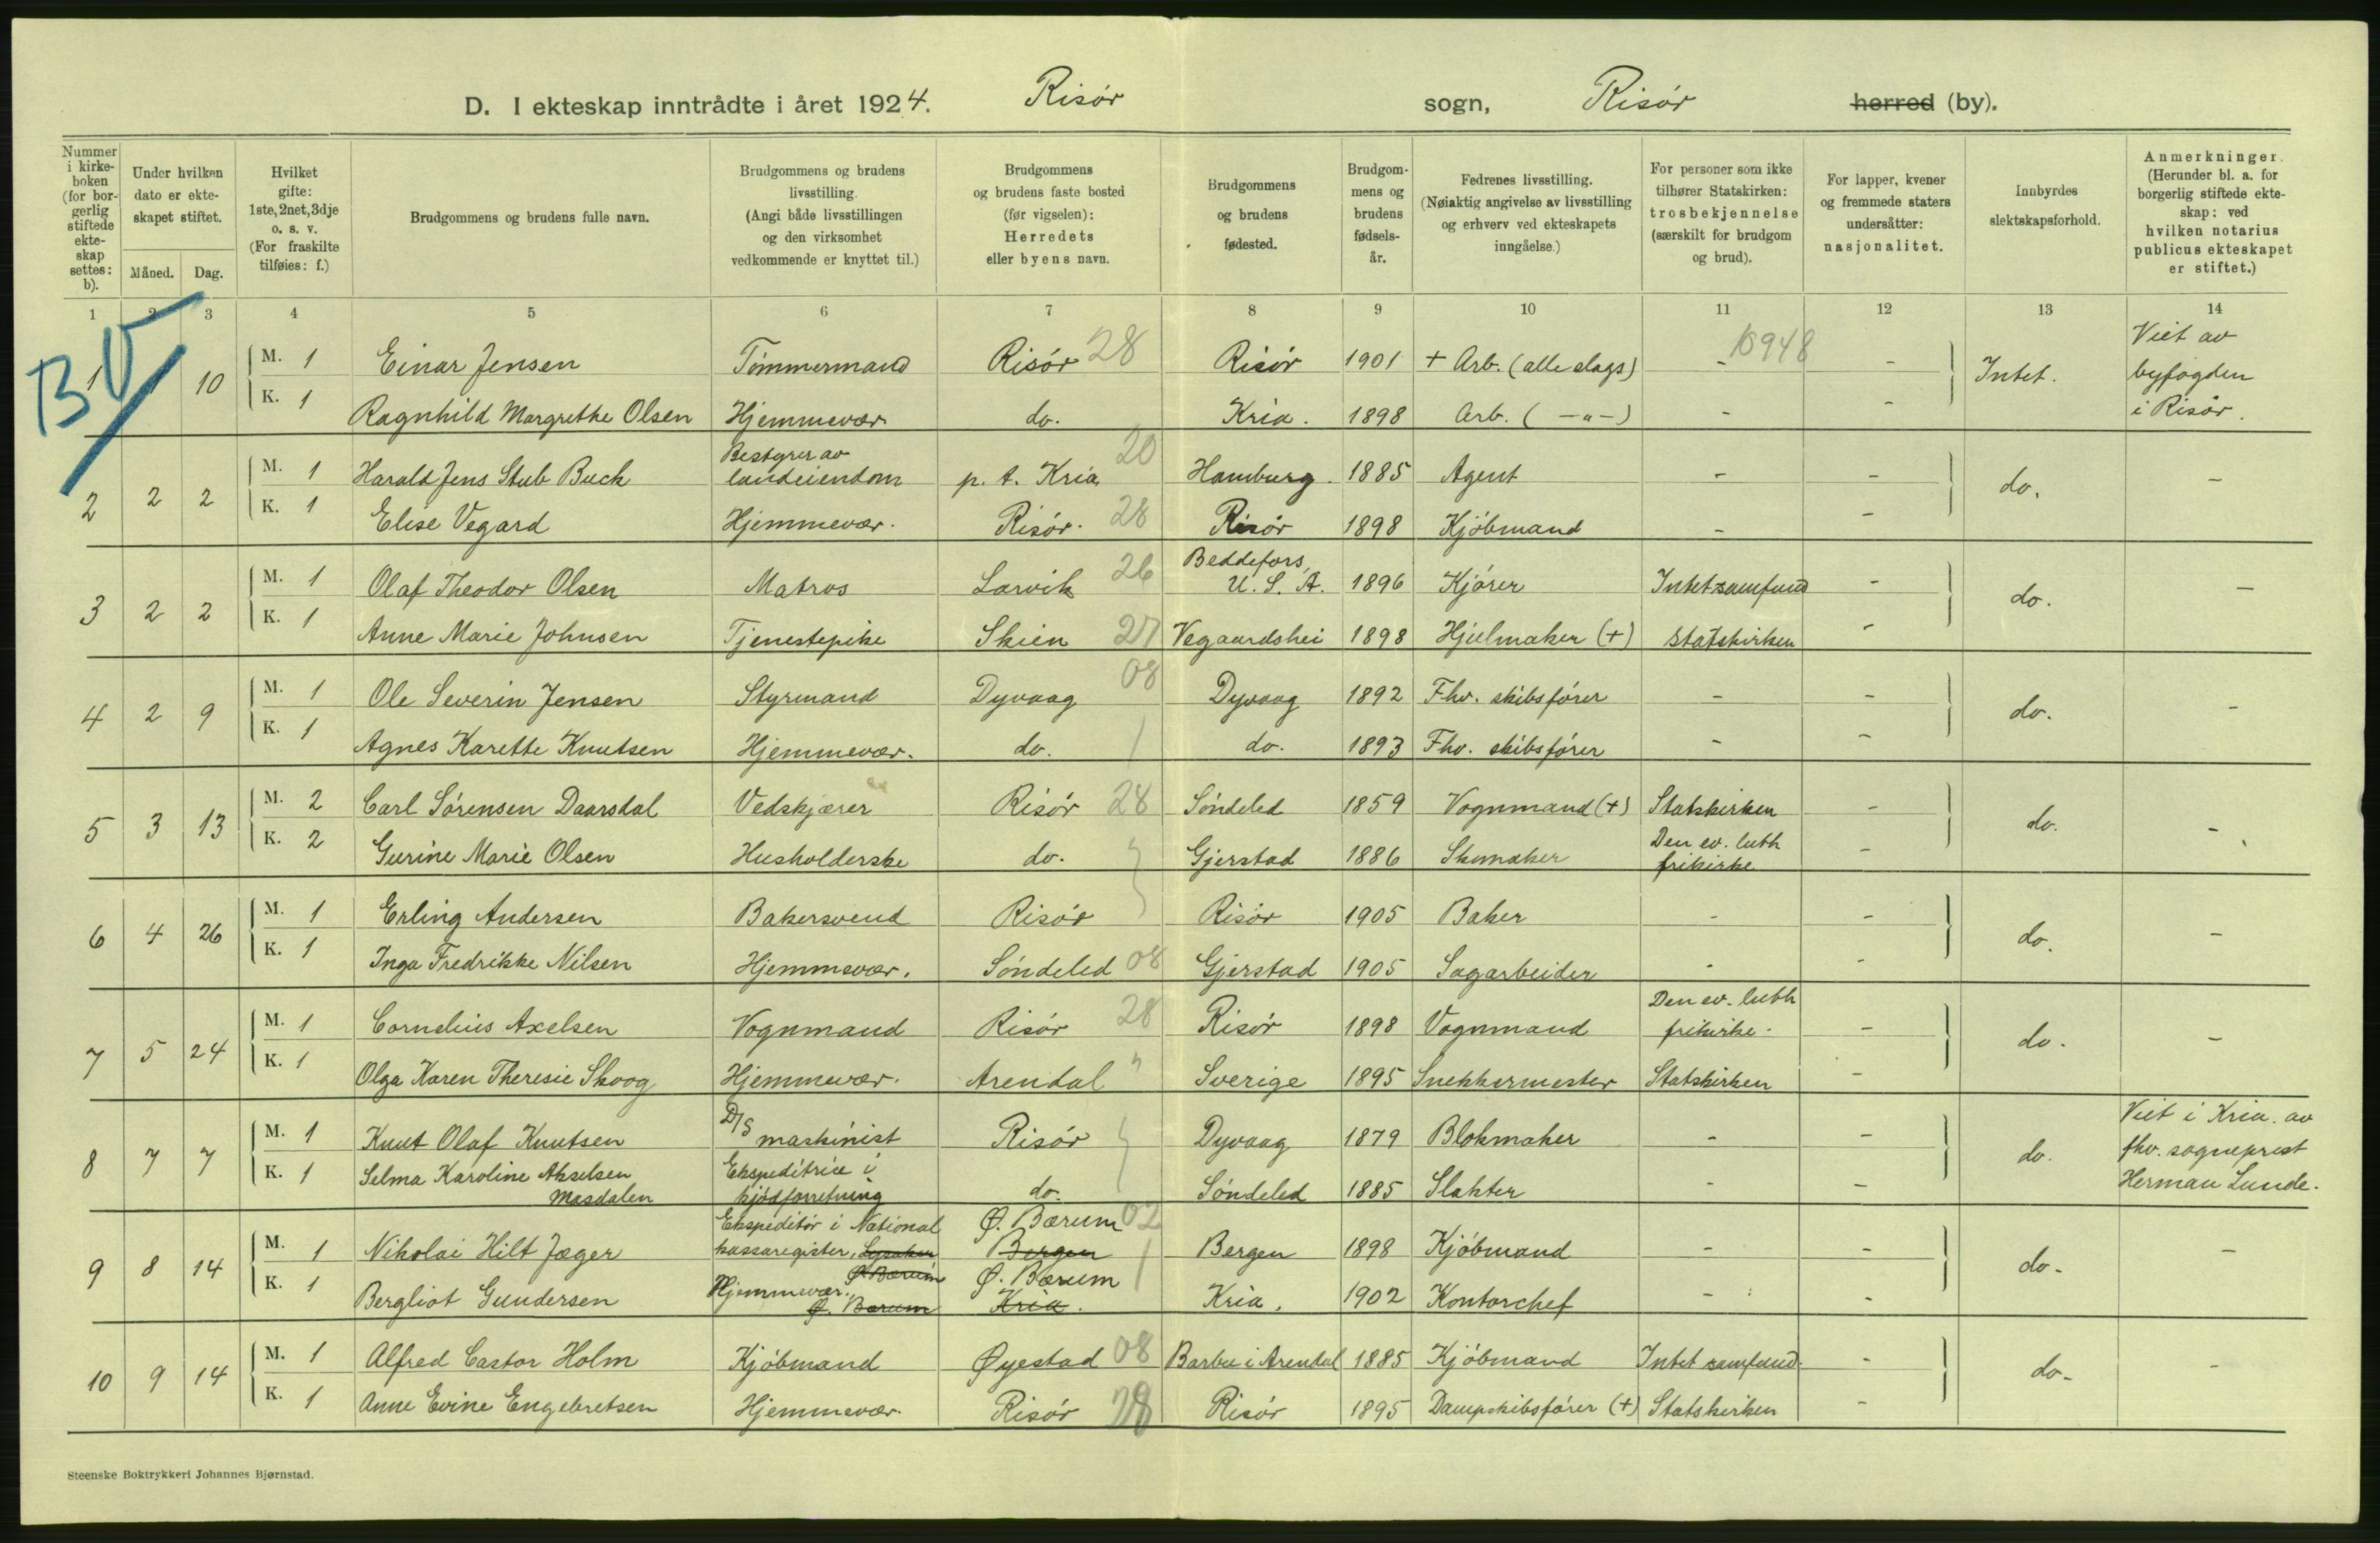 D. I ekteskap inntrådte i året 1924. Risør sogn, Risør herred (by).
Nummer i kirkeboken (for borgerlig stiftede ekteskap settes: b).
Under hvilken dato er ekteskapet stiftet.
Måned. Dag.
Hvilket gifte: 1ste, 2net, 3dje o. s. v. (For fraskilte tilføies: f.)
Brudgommens og brudens fulle navn.
Brudgommens og brudens livsstilling. (Angi både livsstillingen og den virksomhet vedkommende er knyttet til.)
Brudgommens og brudens faste bosted (før vigselen): Herredets eller byens navn.
Brudgommens og brudens fødested.
Brudgommens og brudens fødselsår.
Fedrenes livsstilling. (Nøiaktig angivelse av livsstilling og erhverv ved ekteskapets inngåelse.)
For personer som ikke tilhører Statskirken: trosbekjennelse (særskilt for brudgom og brud).
For lapper, kvener og fremmede staters undersåtter: nasjonalitet.
Innbyrdes slektskapsforhold.
Anmerkninger. (Herunder bl. a. for borgerlig stiftede ekteskap: ved hvilken notarius publicus ekteskapet er stiftet.)
1 2 3 4 5 6 7 8 9 10 11 12 13 14
B V
1 1 10 M. 1 Einar Jensen Tømmermand Risør 28 Risør 1901 + Arb. (alle slags) - 10948 - Intet. Viet av byfogden i Risør.
K. 1 Ragnhild Margrethe Olsen Hjemmevær do. Kria. 1898 Arb. ( —"—) - -
2 2 2 M. 1 Harald Jens Stub Buck Bestyrer av landeiendom p. t. Kria 20 Hamburg. 1885 Agent - - do. -
K. 1 Elise Vegard Hjemmevær. Risør. 28 Risør 1898 Kjøbmand - -
3 2 2 M. 1 Olaf Theodor Olsen Matros Larvik 26 Beddefors, U. S. A. 1896 Kjører Intet samfund - do. -
K. 1 Anne Marie Johnsen Tjenestepike Skien 27 Vegaardshei 1898 Hjulmaker (+) Statskirken -
4 2 9 M. 1 Ole Severin Jensen Styrmand Dyvaag 08 Dyvaag 1892 Fhv. skibsfører - - do. -
K. 1 Agnes Karette Knutsen Hjemmevær. do. do. 1893 Fhv. skibsfører - -
5 3 13 M. 2 Carl Sørensen Daarsdal Vedskjærer Risør 28 Søndeled 1859 Vognmand (+) Statskirken - do. -
K. 2 Gurine Marie Olsen Husholderske do. Gjerstad 1886 Skomaker Den ev. luth frikirke -
6 4 26 M. 1 Erling Andersen Bakersvend Risør Risør 1905 Baker - - do. -
K. 1 Inga Fredrikke Nilsen Hjemmevær. Søndeled 08 Gjerstad 1905 Sagarbeider - -
7 5 24 M. 1 Cornelius Axelsen Vognmand Risør 28 Risør 1898 Vognmand Den ev. luth frikirke. - do. -
K. 1 Olga Karen Theresie Skoog Hjemmevær. Arendal " Sverige 1895 Snekkermester Statskirken -
8 7 7 M. 1 Knut Olaf Knutsen D/S maskinist Risør Dyvaag 1879 Blokmaker - - do. Viet i Kria. av fhv. sogneprest Herman Lunde.
K. 1 Selma Karoline Akselsen Masdalen Ekspeditrice i kjødforretning do. Søndeled 1885 Slakter - -
9 8 14 M. 1 Nikolai Hilt Jæger Ekspeditør i National kassaregister, Lysaker Ø. Bærum Ø. Bærum 02 Bergen Bergen 1898 Kjøbmand - - do. -
K. 1 Bergliot Gundersen Hjemmevær. Ø. Bærum Ø. Bærum Kria. Kria. 1902 Kontorchef - -
10 9 14 M. 1 Alfred Castor Holm Kjøbmand Øyestad 08 Barbu i Arendal 1885 Kjøbmand Intet samfund. - do. -
K. 1 Anne Evine Engebretsen Hjemmevær. Risør 28 Risør 1895 Dampskibsfører (+) Statskirken -
Steenske Boktrykkeri Johannes Bjørnstad.